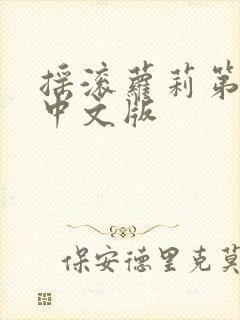 摇滚萝莉第
中文版
保安德里克莫